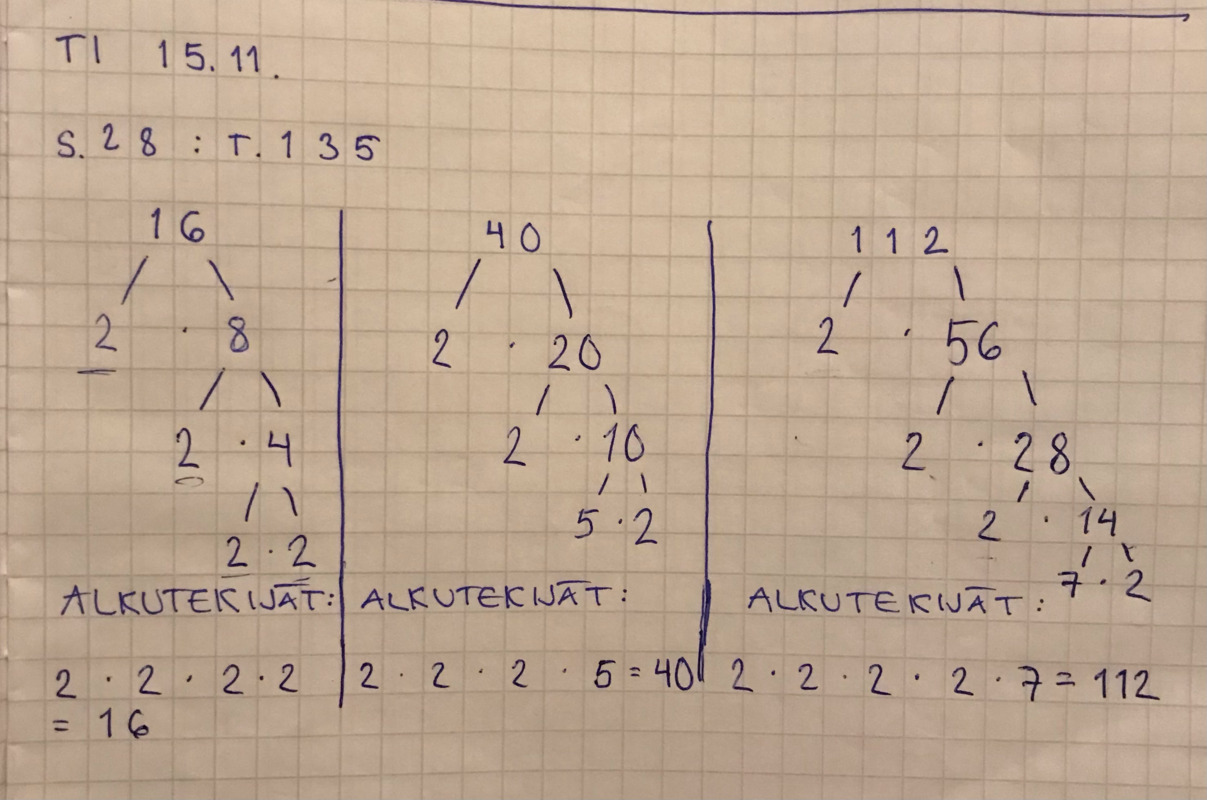 TI 15.11.
S.28 : T.135
16
2 · 8
2 · 4
2 · 2
ALKUTEKIJÄT:
2 · 2 · 2 · 2
= 16
40
2 · 20
2 · 10
5 · 2
ALKUTEKIJÄT:
2 · 2 · 2 · 5 = 40
112
2 · 56
2 · 28
2 · 14
7 · 2
ALKUTEKIJÄT:
2 · 2 · 2 · 2 · 7 = 112